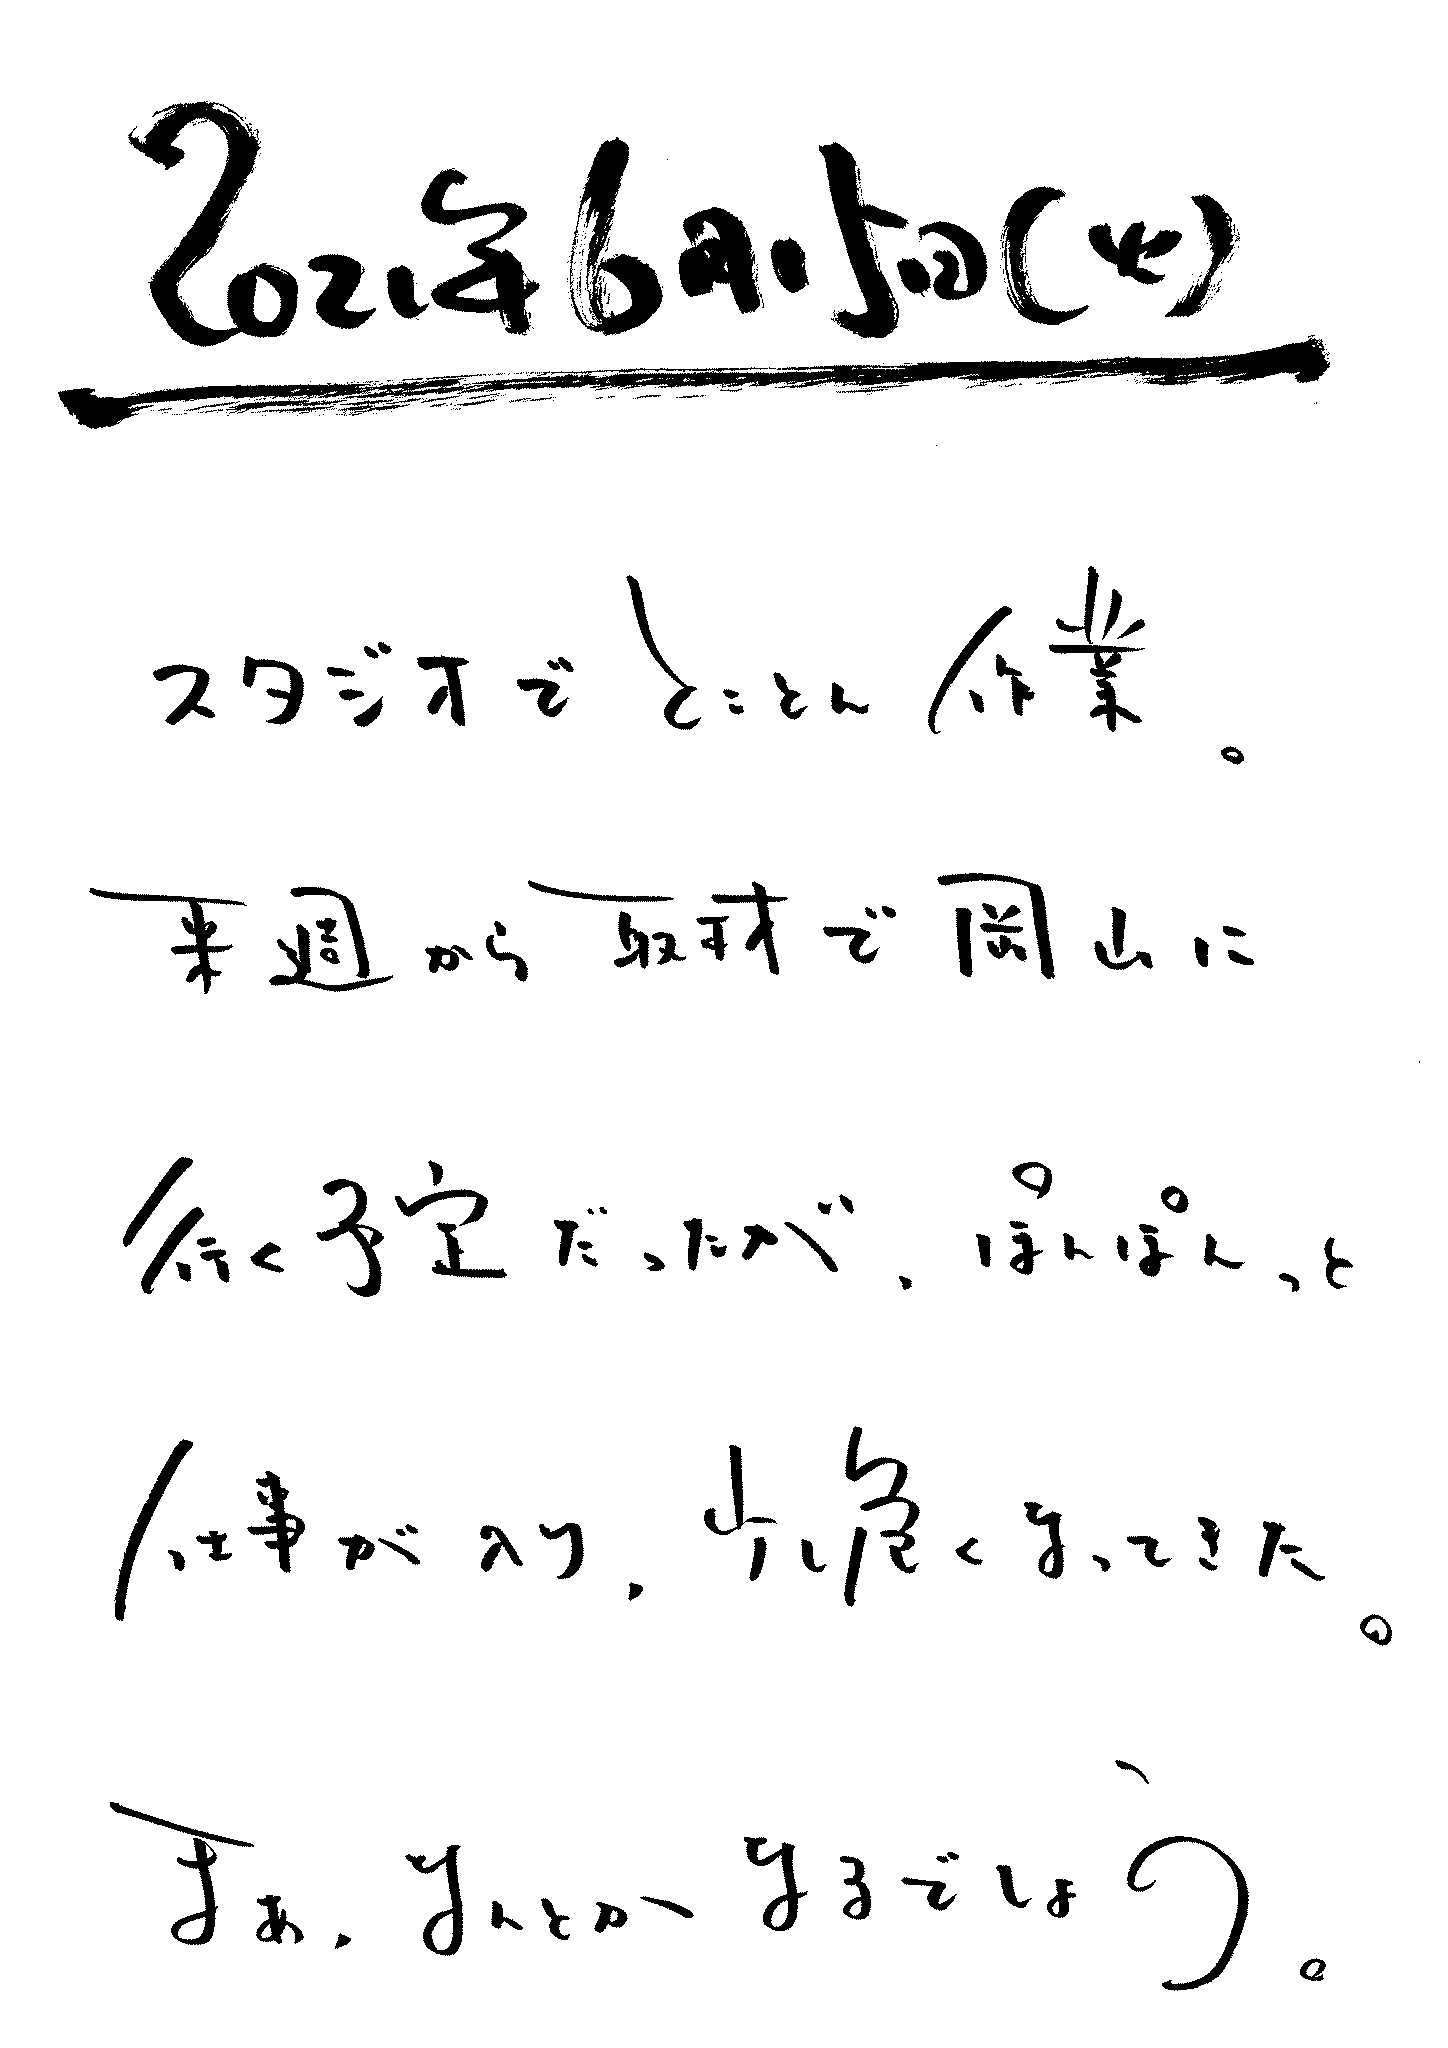 2021年6月15日(火)
スタジオでとことん作業。
来週から取材で岡山に
行く予定だったが、ぽんぽんっと
仕事が入り、少し危くなってきた。
まぁ、なんとかなるでしょう。